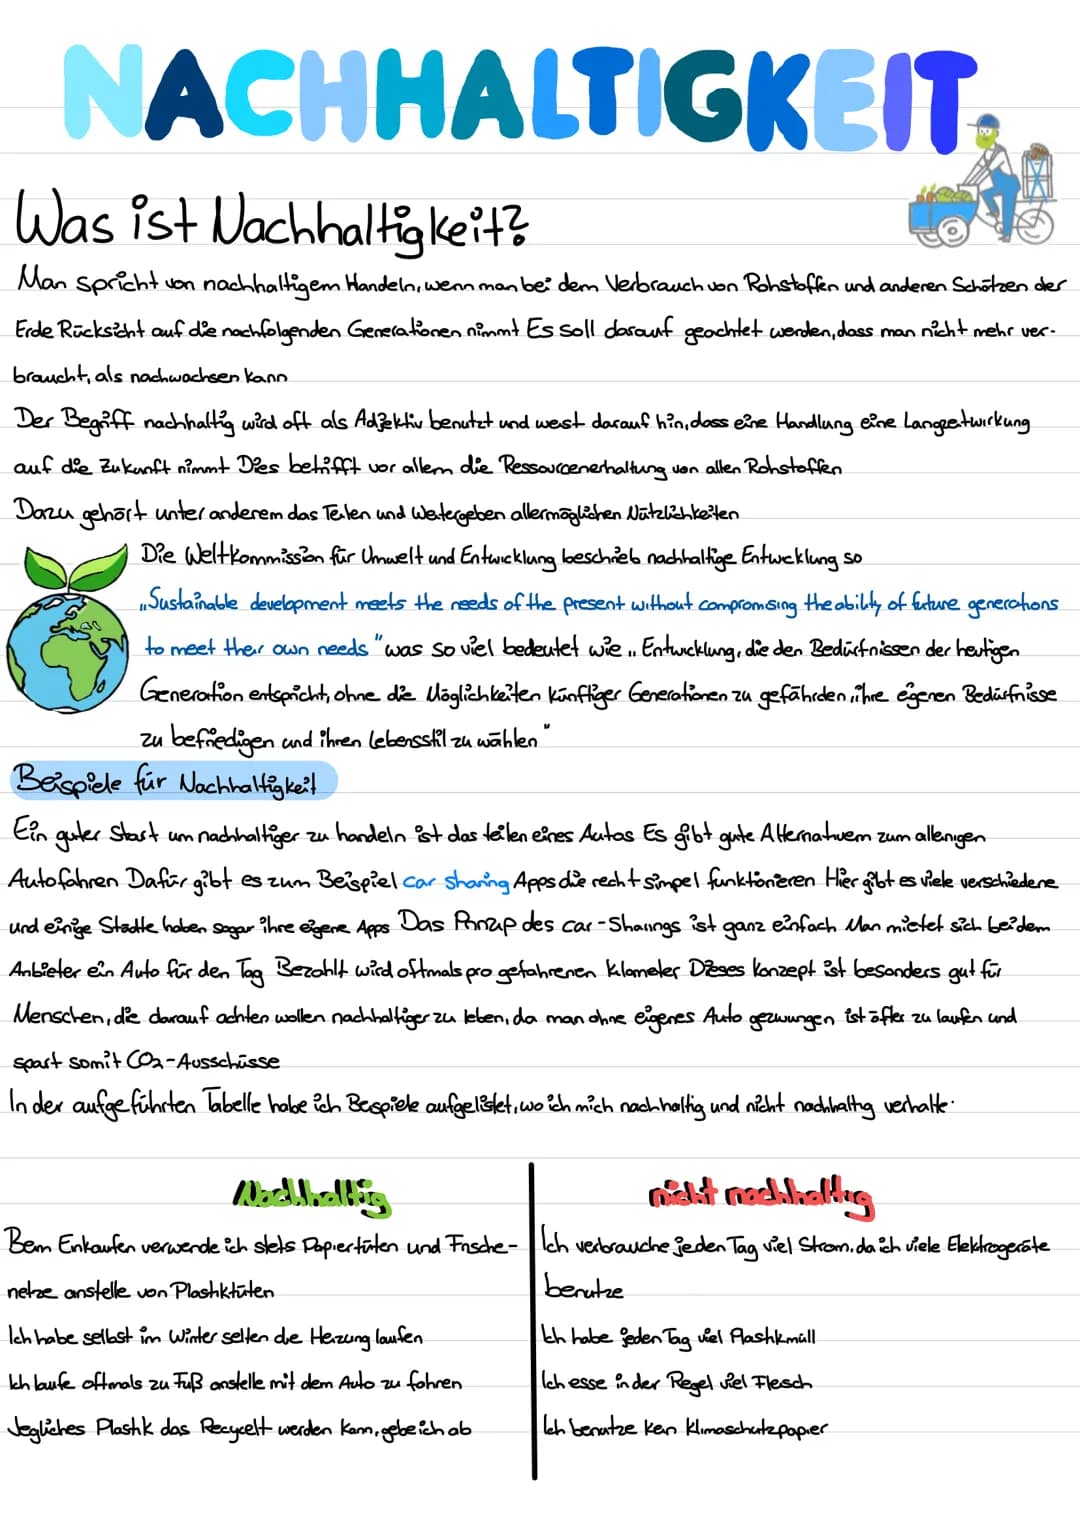 NACHHALTIGKEIT
Was ist Nachhaltigkeit?
Man spricht von nachhaltigem Handeln, wenn man bei dem Verbrauch von Rohstoffen und anderen Schätzen der
Erde Rücksicht auf die nachfolgenden Generationen nimmt Es soll darauf geachtet werden, dass man nicht mehr ver-
braucht, als nachwachsen kann
Der Begriff nachhaltig wird oft als Adjektiv benutzt und weist darauf hin, dass eine Handlung eine Langzeitwirkung
auf die Zukunft nimmt Dies betrifft vor allem die Ressourcenerhaltung von allen Rohstoffen
Dazu gehört unter anderem das Teilen und Weitergeben allermöglichen Nützlichkeiten
Die Weltkommission für Umwelt und Entwicklung beschrieb nachhaltige Entwicklung so
„Sustainable development meets the needs of the present without compromising the ability of future generations
to meet their own needs" was so viel bedeutet wie „Entwicklung, die den Bedürfnissen der heutigen
Generation entspricht, ohne die Möglichkeiten künftiger Generationen zu gefährden, ihre eigenen Bedürfnisse
zu befriedigen und ihren Lebensstil zu wählen"
Beispiele für Nachhaltigkeit
Ein guter Start um nachhaltiger zu handeln ist das teilen eines Autos Es gibt gute Alternativem zum allenigen
Autofahren Dafür gibt es zum Beispiel car sharing Apps die recht simpel funktionieren Hier gibt es viele verschiedene
und einige Städte haben sogar ihre eigene Apps Das Prinzip des car-Sharings ist ganz einfach Man mietet sich bei dem
Anbieter ein Auto für den Tag Bezahlt wird oftmals pro gefahrenen Kilometer Dieses Konzept ist besonders gut für
Menschen, die darauf achten wollen nachhaltiger zu leben, da man ohne eigenes Auto gezwungen ist öfter zu laufen und
spart somit CO2-Ausschüsse
In der aufgeführten Tabelle habe ich Beispiele aufgelistet, wo ich mich nachhaltig und nicht nachhaltig verhalte.
Nachhaltig
Beim Einkaufen verwende ich stets Papiertüten und Frische-
netze anstelle von Plastiktüten
Ich habe selbst im Winter selten die Heizung laufen
Ich laufe oftmals zu Fuß anstelle mit dem Auto zu fahren
Jegliches Plastik das Recycelt werden kann, gebe ich ab
nicht nachhaltig
Ich verbrauche jeden Tag viel Strom, da ich viele Elektrogeräte
benutze
Ich habe jeden Tag viel Plastikmüll
Ich esse in der Regel viel Fleisch
Ich benutze kein Klimaschutzpapier